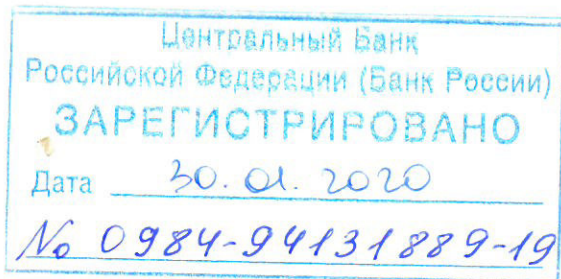 Центральный Банк
Российской Федерации (Банк России)
ЗАРЕГИСТРИРОВАНО
Дата 30.01.2020
№ 0984-94131889-19